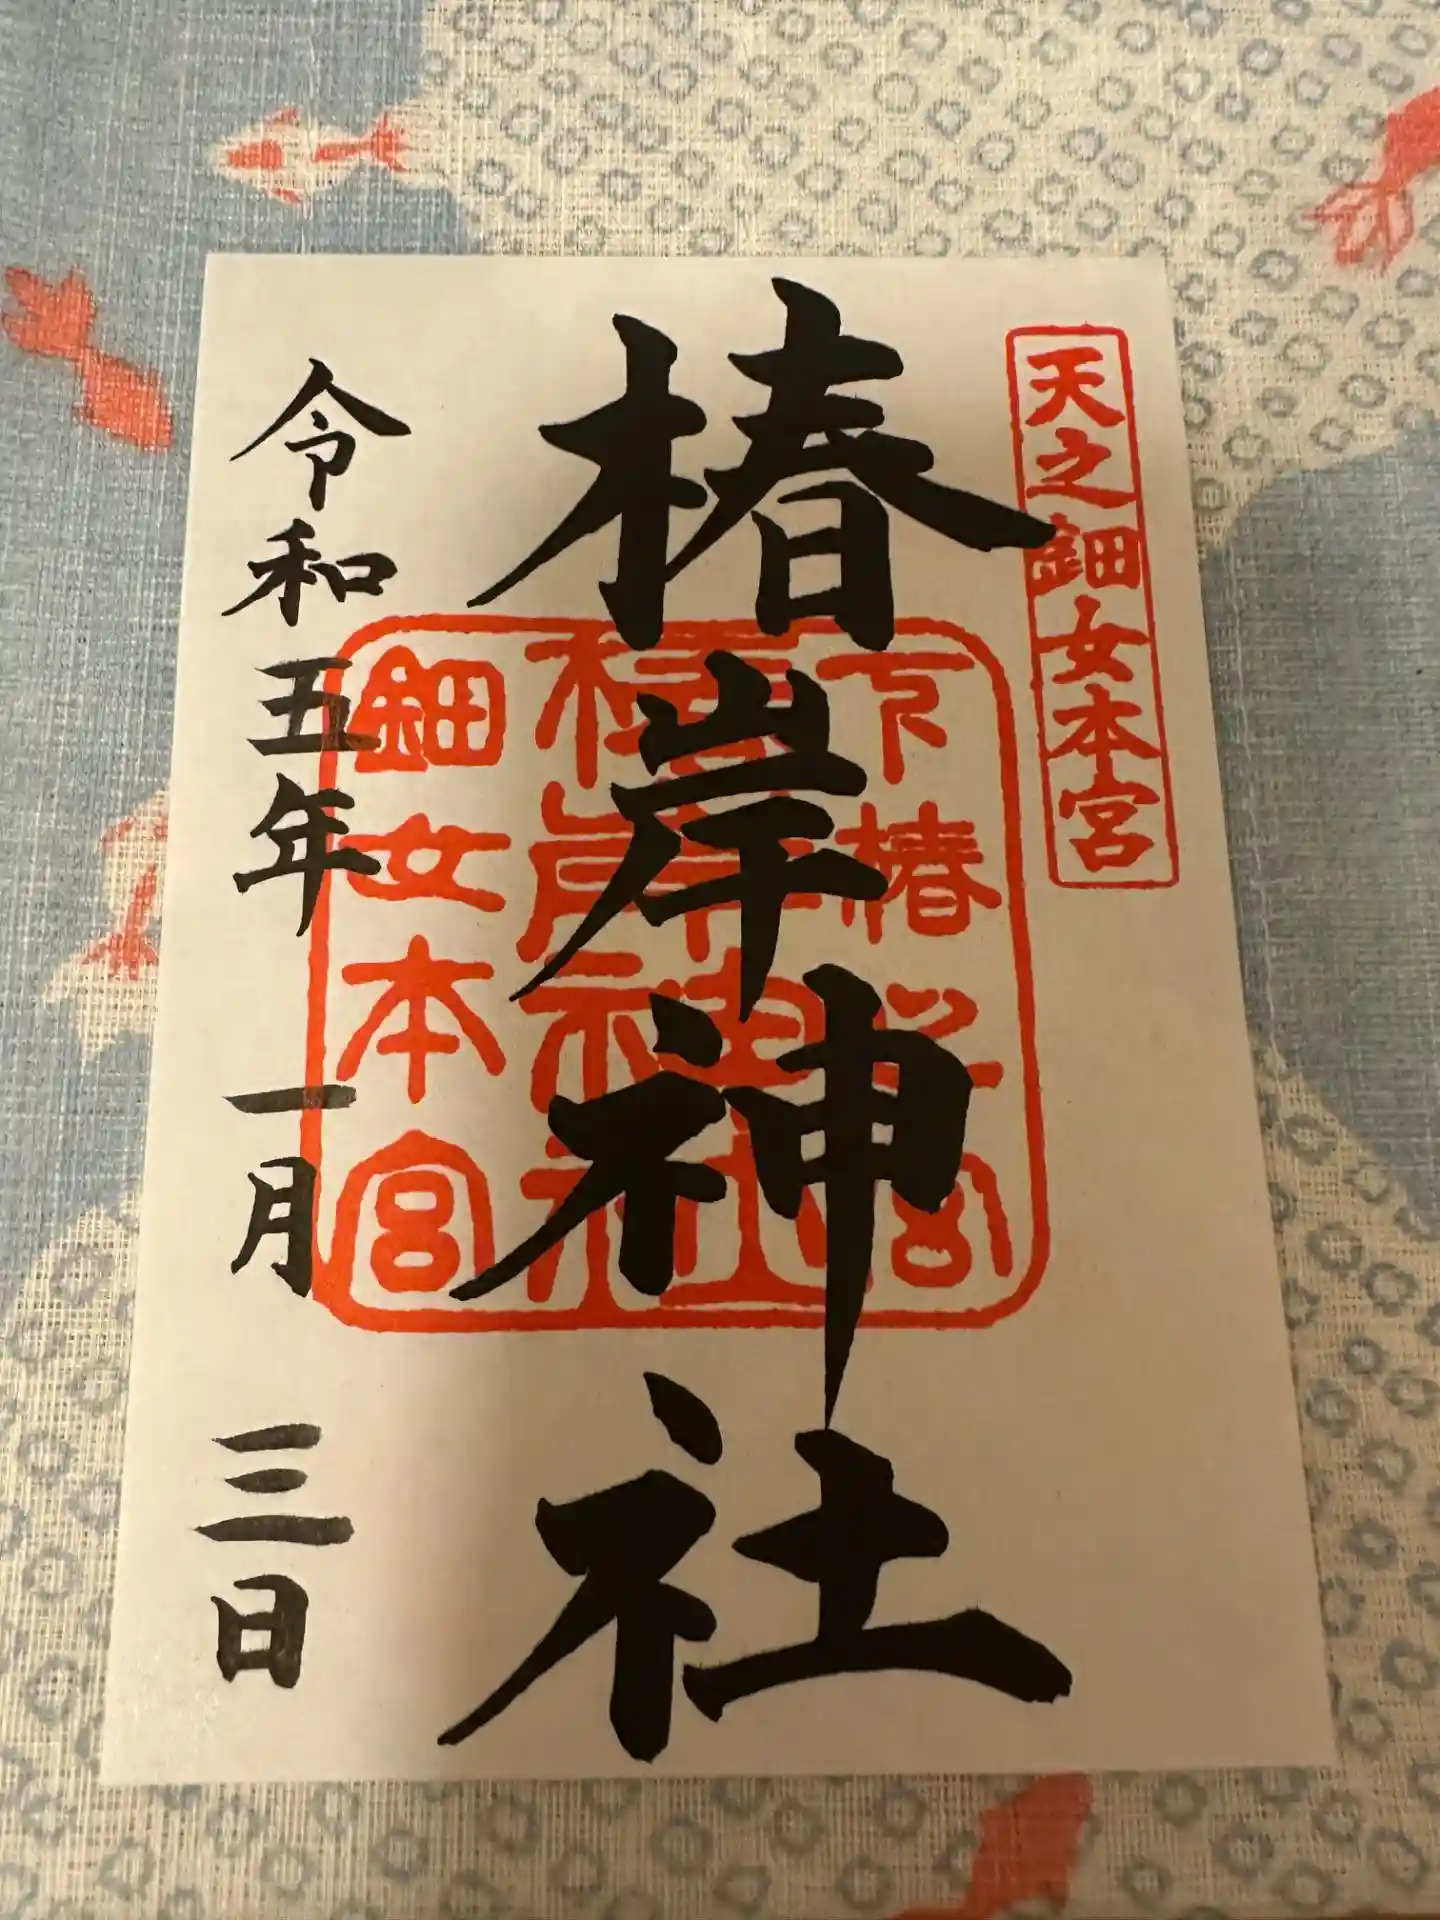 天之鈿女本宮
椿岸神社
下椿之宮
椿岸神社
鈿女本宮
令和五年一月三日